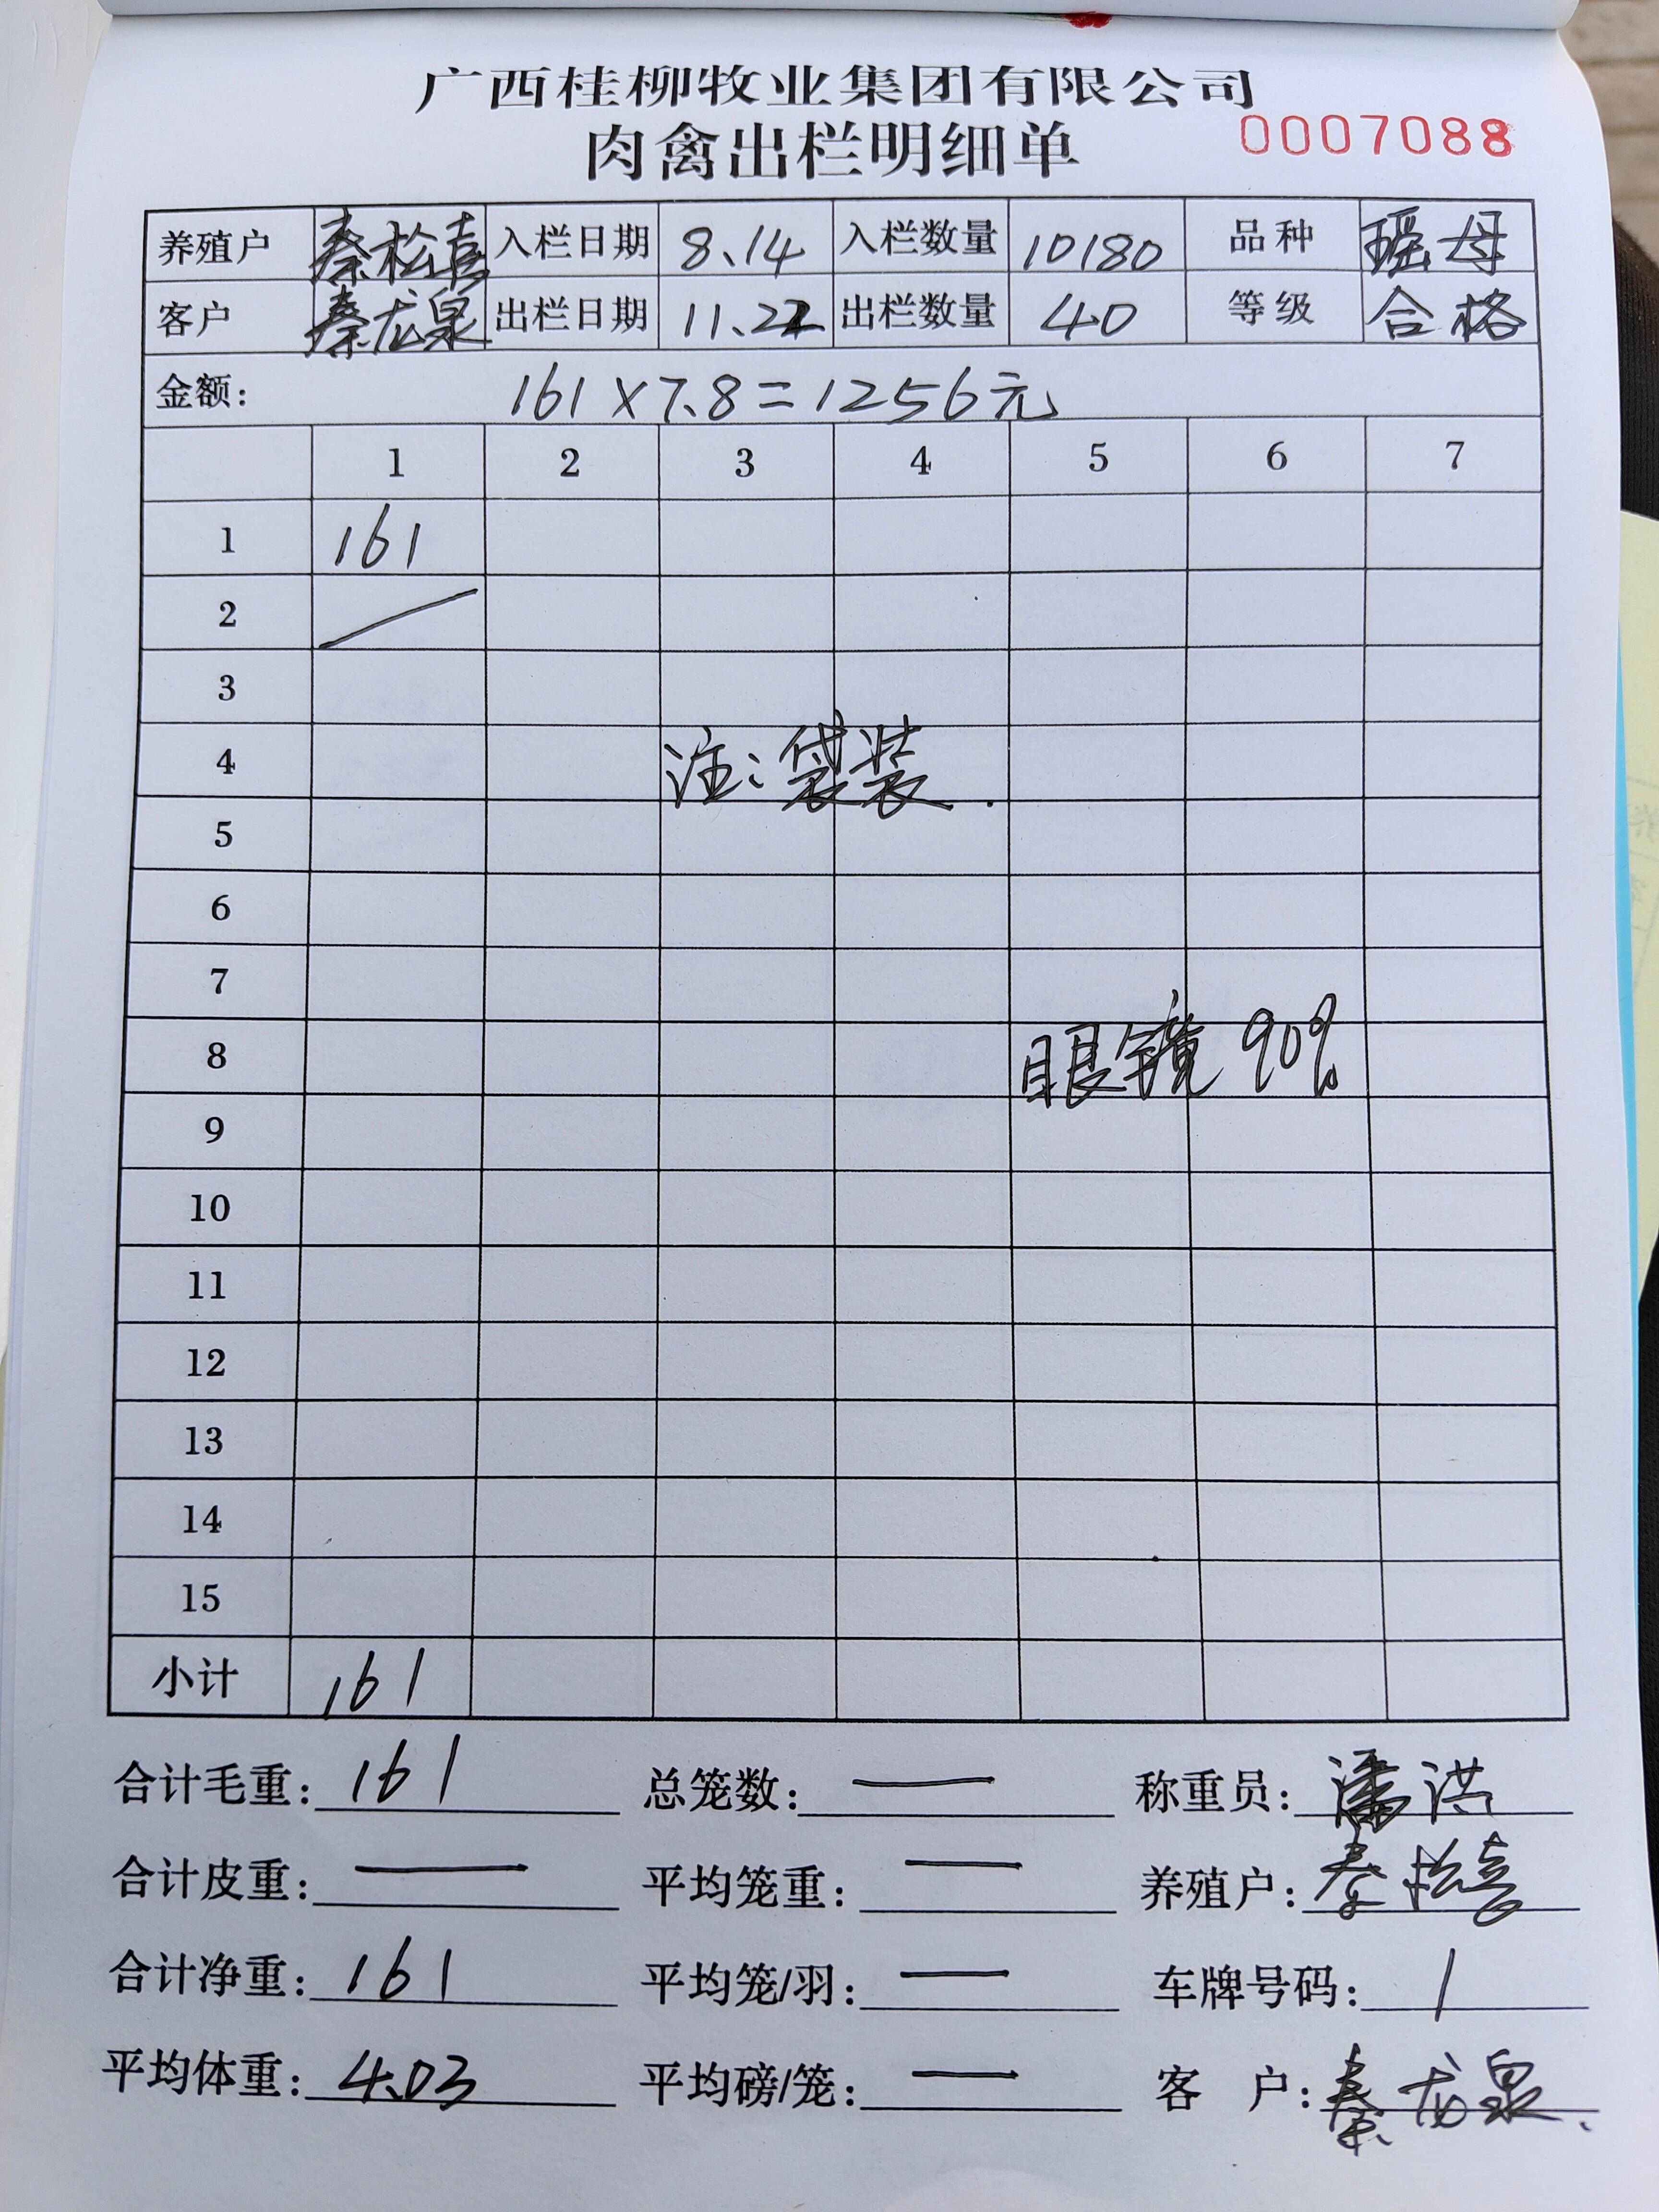 广西桂柳牧业集团有限公司
肉禽出栏明细单 0007088
养殖户 秦松喜 入栏日期 8.14 入栏数量 10180 品种 瑶母
客户 秦龙泉 出栏日期 11.22 出栏数量 40 等级 合格
金额: 161×7.8=1256元
1 2 3 4 5 6 7
1 161
2
3
4 注:袋装.
5
6
7
8 眼镜90%
9
10
11
12
13
14
15
小计 161
合计毛重: 161 总笼数: — 称重员: 潘洪
合计皮重: — 平均笼重: — 养殖户: 秦松喜
合计净重: 161 平均笼/羽: — 车牌号码: /
平均体重: 4.03 平均磅/笼: — 客 户: 秦龙泉.